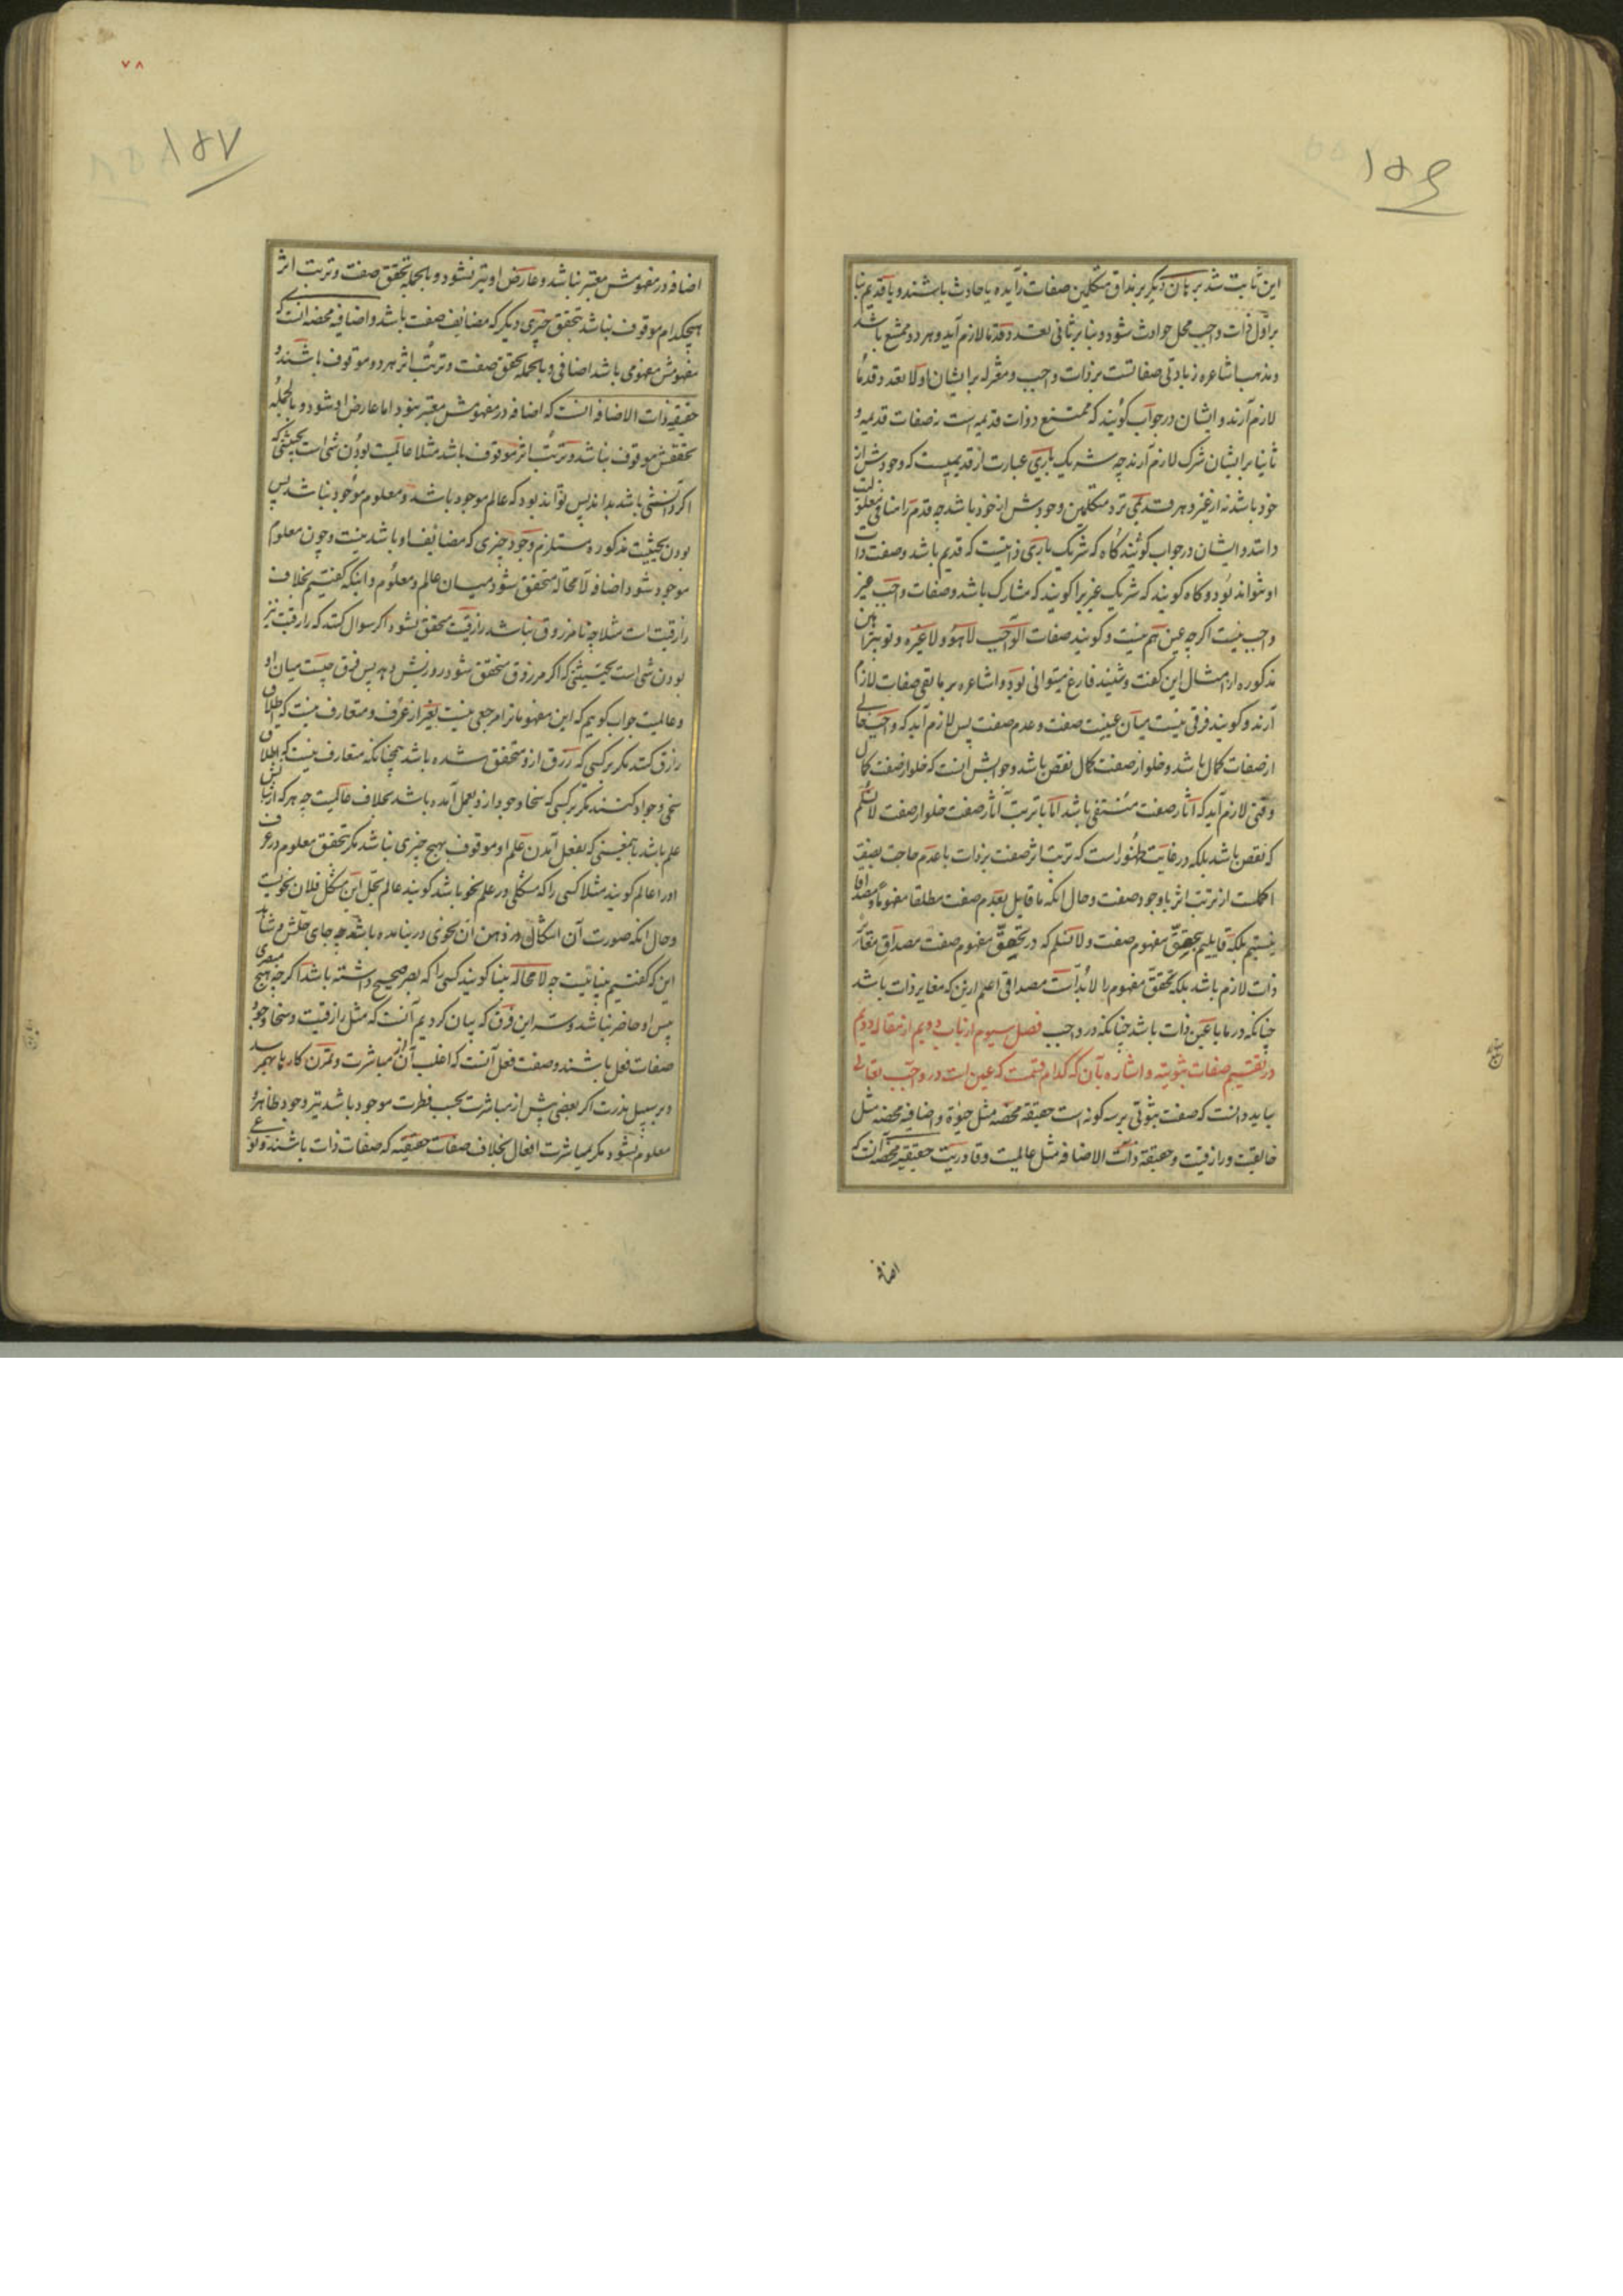 ۱۵۶
این ثابت شد برهان دیگر بر مذاق متکلمین صفات زایده یا حادث باشند و یا قدیم بنا
بر اول ذات واجب محل حوادث شود و بنا بر ثانی تعدد قدما لازم آید و هر دو ممتنع باشد
و مذهب اشاعره زیادتی صفاتست بر ذات واجب و معتزله بر ایشان اولا تعدد قدما
لازم آرند و ایشان در جواب کویند که ممتنع ذوات قدیمه است نه صفات قدیمه و
ثانیا بر ایشان شرک لازم آرند چه شریک باری عبارت از قدیمیست که وجودش از
خود باشد نه از غیر و هر قدیمی نزد متکلمین وجودش از خود باشد چه قدم را منافی معلولیت
دانند و ایشان در جواب کویند کاه که شریک باری ذاتیست که قدیم باشد و صفت ذات
او نتواند بود و کاه کویند که شریک غیریرا کویند که مشارک باشد و صفات واجب غیر
واجب نیست اکرچه عین هم نیست و کویند صفات الواجب لا هو و لا غیره و تو ببراهین
مذکوره از امثال این کفت و شنیند فارغ میتوانی بود و اشاعره بر ما نفی صفات لازم
آرند و کویند فرقی نیست میان عینیت صفت و عدم صفت پس لازم آید که واجب تعالی
از صفات کمال باشد و خلو از صفت کمال نقص باشد و جوابش انست که خلو از صفت کمال
وقتی لازم آید که آثار صفت منتفی باشد اما با ترتب آثار صفت خلو از صفت لانسلم
که نقص باشد بلکه در غایت ظهور است که ترتب اثر صفت بر ذات با عدم حاجت بصفت
اکملست از ترتب اثر با وجود صفت و حال انکه ما قایل بعدم صفت مطلقا مفهوما و مصداقا
نیستیم بلکه قایلیم بتحقق مفهوم صفت و لا نسلم که در تحقق مفهوم صفت مصداق مغایر
ذات لازم باشد بلکه تحقق مفهوم را لابد است مصداقی اعلم ازین که مغایر ذات باشد
چنانکه در ما یا عین ذات باشد چنانکه در واجب فصل سیوم از باب دویم از مقاله دویم
در تقسیم صفات ثبوتیه و اشاره بآن که کدام قسمت که عین است در واجب تعالی
بباید دانست که صفت ثبوتی بر سه کونه است حقیقه محضه مثل حیوة و اضافیه محضه مثل
خالقیت و رازقیت و حقیقة ذات الاضافه مثل عالمیت و قادریت حقیقیه محضه آنست که
اضافه
۷۸
۱۵۷
اضافه در مفهومش معتبر نباشد و عارض او نیز نشود و بالجمله تحقق صفت و ترتب اثر
هیچکدام موقوف نباشد بتحقق چیزی دیکر که مضایف صفت باشد و اضافیه محضه انست که
مفهومش مفهومی باشد اضافی و بالجمله تحقق صفت و ترتب اثر هر دو موقوف باشند و
حقیقیه ذات الاضافه انست که اضافه در مفهومش معتبر نبود اما عارض او شود و بالجمله
تحققش موقوف نباشد و ترتب اثر موقوف باشد مثلا عالمیت بودن شی است بحیثیتی که
اکر دانستنی باشد بداند پس تواند بود که عالم موجود باشد و معلوم موجود نباشد پس
بودن بحیثیت مذکوره مستلزم وجود چیزی که مضایف او باشد نیست و چون معلوم
موجود شود اضافه لا محاله متحقق شود میان عالم و معلوم و اینکه کفتیم بخلاف
رازقیت است مثلا چه تا مرزوق نباشد رازقیت متحقق نشود اکر سوال کند که رازقیت نیز
بودن شی است بحیثیتی که اکر مرزوق متحقق شود روزیش دهد پس فرق چیست میان او
و عالمیت جواب کوییم که این مفهوما ترا مرجعی نیست بغیر از عرف و متعارف نیست که اطلاق
رازق کنند مکر بر کسی که رزق ازو متحقق شده باشد همچنانکه متعارف نیست که اطلاق
سخی و جواد کنند مکر بر کسی که سخا و جود ازو بعمل آمده باشد بخلاف عالمیت چه هر که از شانش
علم باشد بمعنیی که بفعل آمدن علم او موقوف بهیچ چیزی نباشد مکر تحقق معلوم در عرف
او را عالم کویند مثلا کسی را که مشکلی در علم نحو باشد کویند عالم بحل این مشکل فلان نحویست
و حال انکه صورت آن اشکال در ذهن آن نحوی در نیامده باشد چه جای حلش و شاهد
این که کفتیم بیناییست چه لا محاله بینا کویند کسی را که بصر صحیح داشته باشد اکرچه هیچ مبصری
پیش او حاضر نباشد و سر این فرق که بیان کردیم آنست که مثل رازقیت و سخا وجود
صفات فعل باشند و صفت فعل آنست که اغلب آن از مباشرت و تمرن کارها بهم رسد
و بر سبیل ندرت اکر بعضی پیش از مباشرت بحسب فطرت موجود باشد نیز وجود ظاهرا
معلوم نشود مکر بمباشرت افعال بخلاف صفات حقیقیه که صفات ذات باشند و